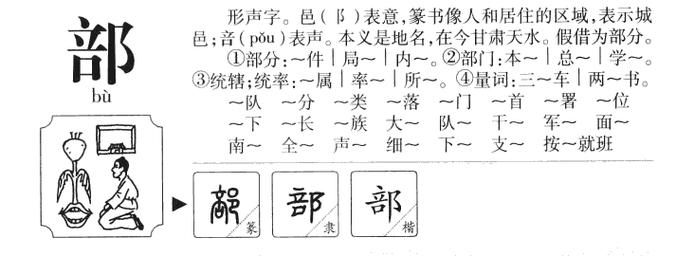 部
bù
形声字。邑(阝)表意,篆书像人和居住的区域,表示城
邑;咅(pǒu)表声。本义是地名,在今甘肃天水。假借为部分。
①部分:~件|局~|内~。②部门:本~|总~|学~。
③统辖;统率:~属|率~|所~。④量词:三~车|两~书。
~队 ~分 ~类 ~落 ~门 ~首 ~署 ~位
~下 ~长 ~族 大~ 队~ 干~ 军~ 面~
南~ 全~ 声~ 细~ 下~ 支~ 按~就班
部 篆 部 隶 部 楷